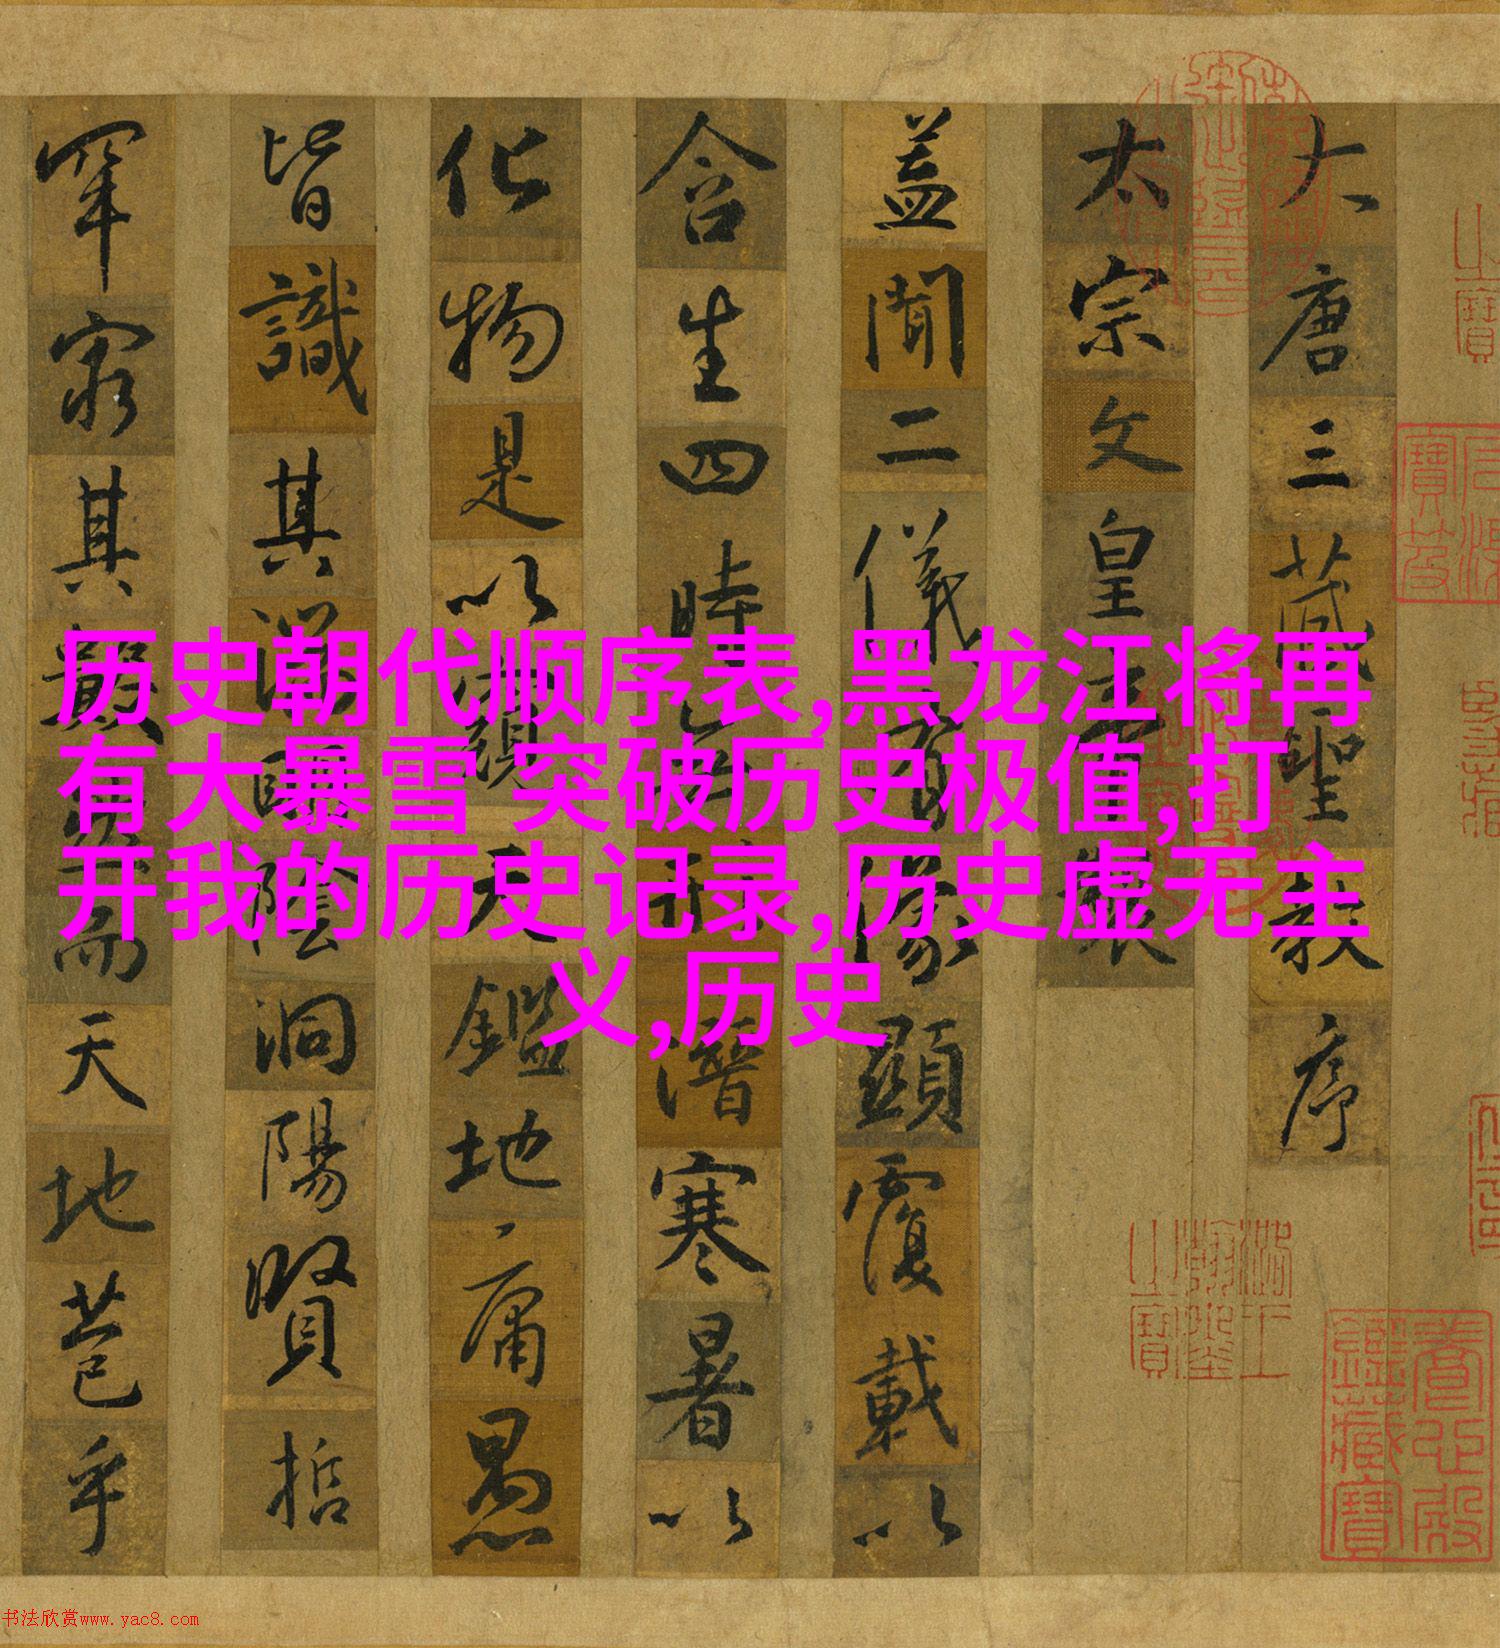 大唐三藏聖教序
太宗文皇帝製
蓋聞二儀有像顯覆載以
含生四時無形潛寒暑以
化物是以窺天鑑地庸愚
皆識其端明陰洞陽賢哲
罕窮其數然而天地苞乎
历史朝代顺序表,黑龙江将再
有大暴雪 突破历史极值,打
开我的历史记录,历史虚无主
义,历史
书法欣赏www.yac8.com